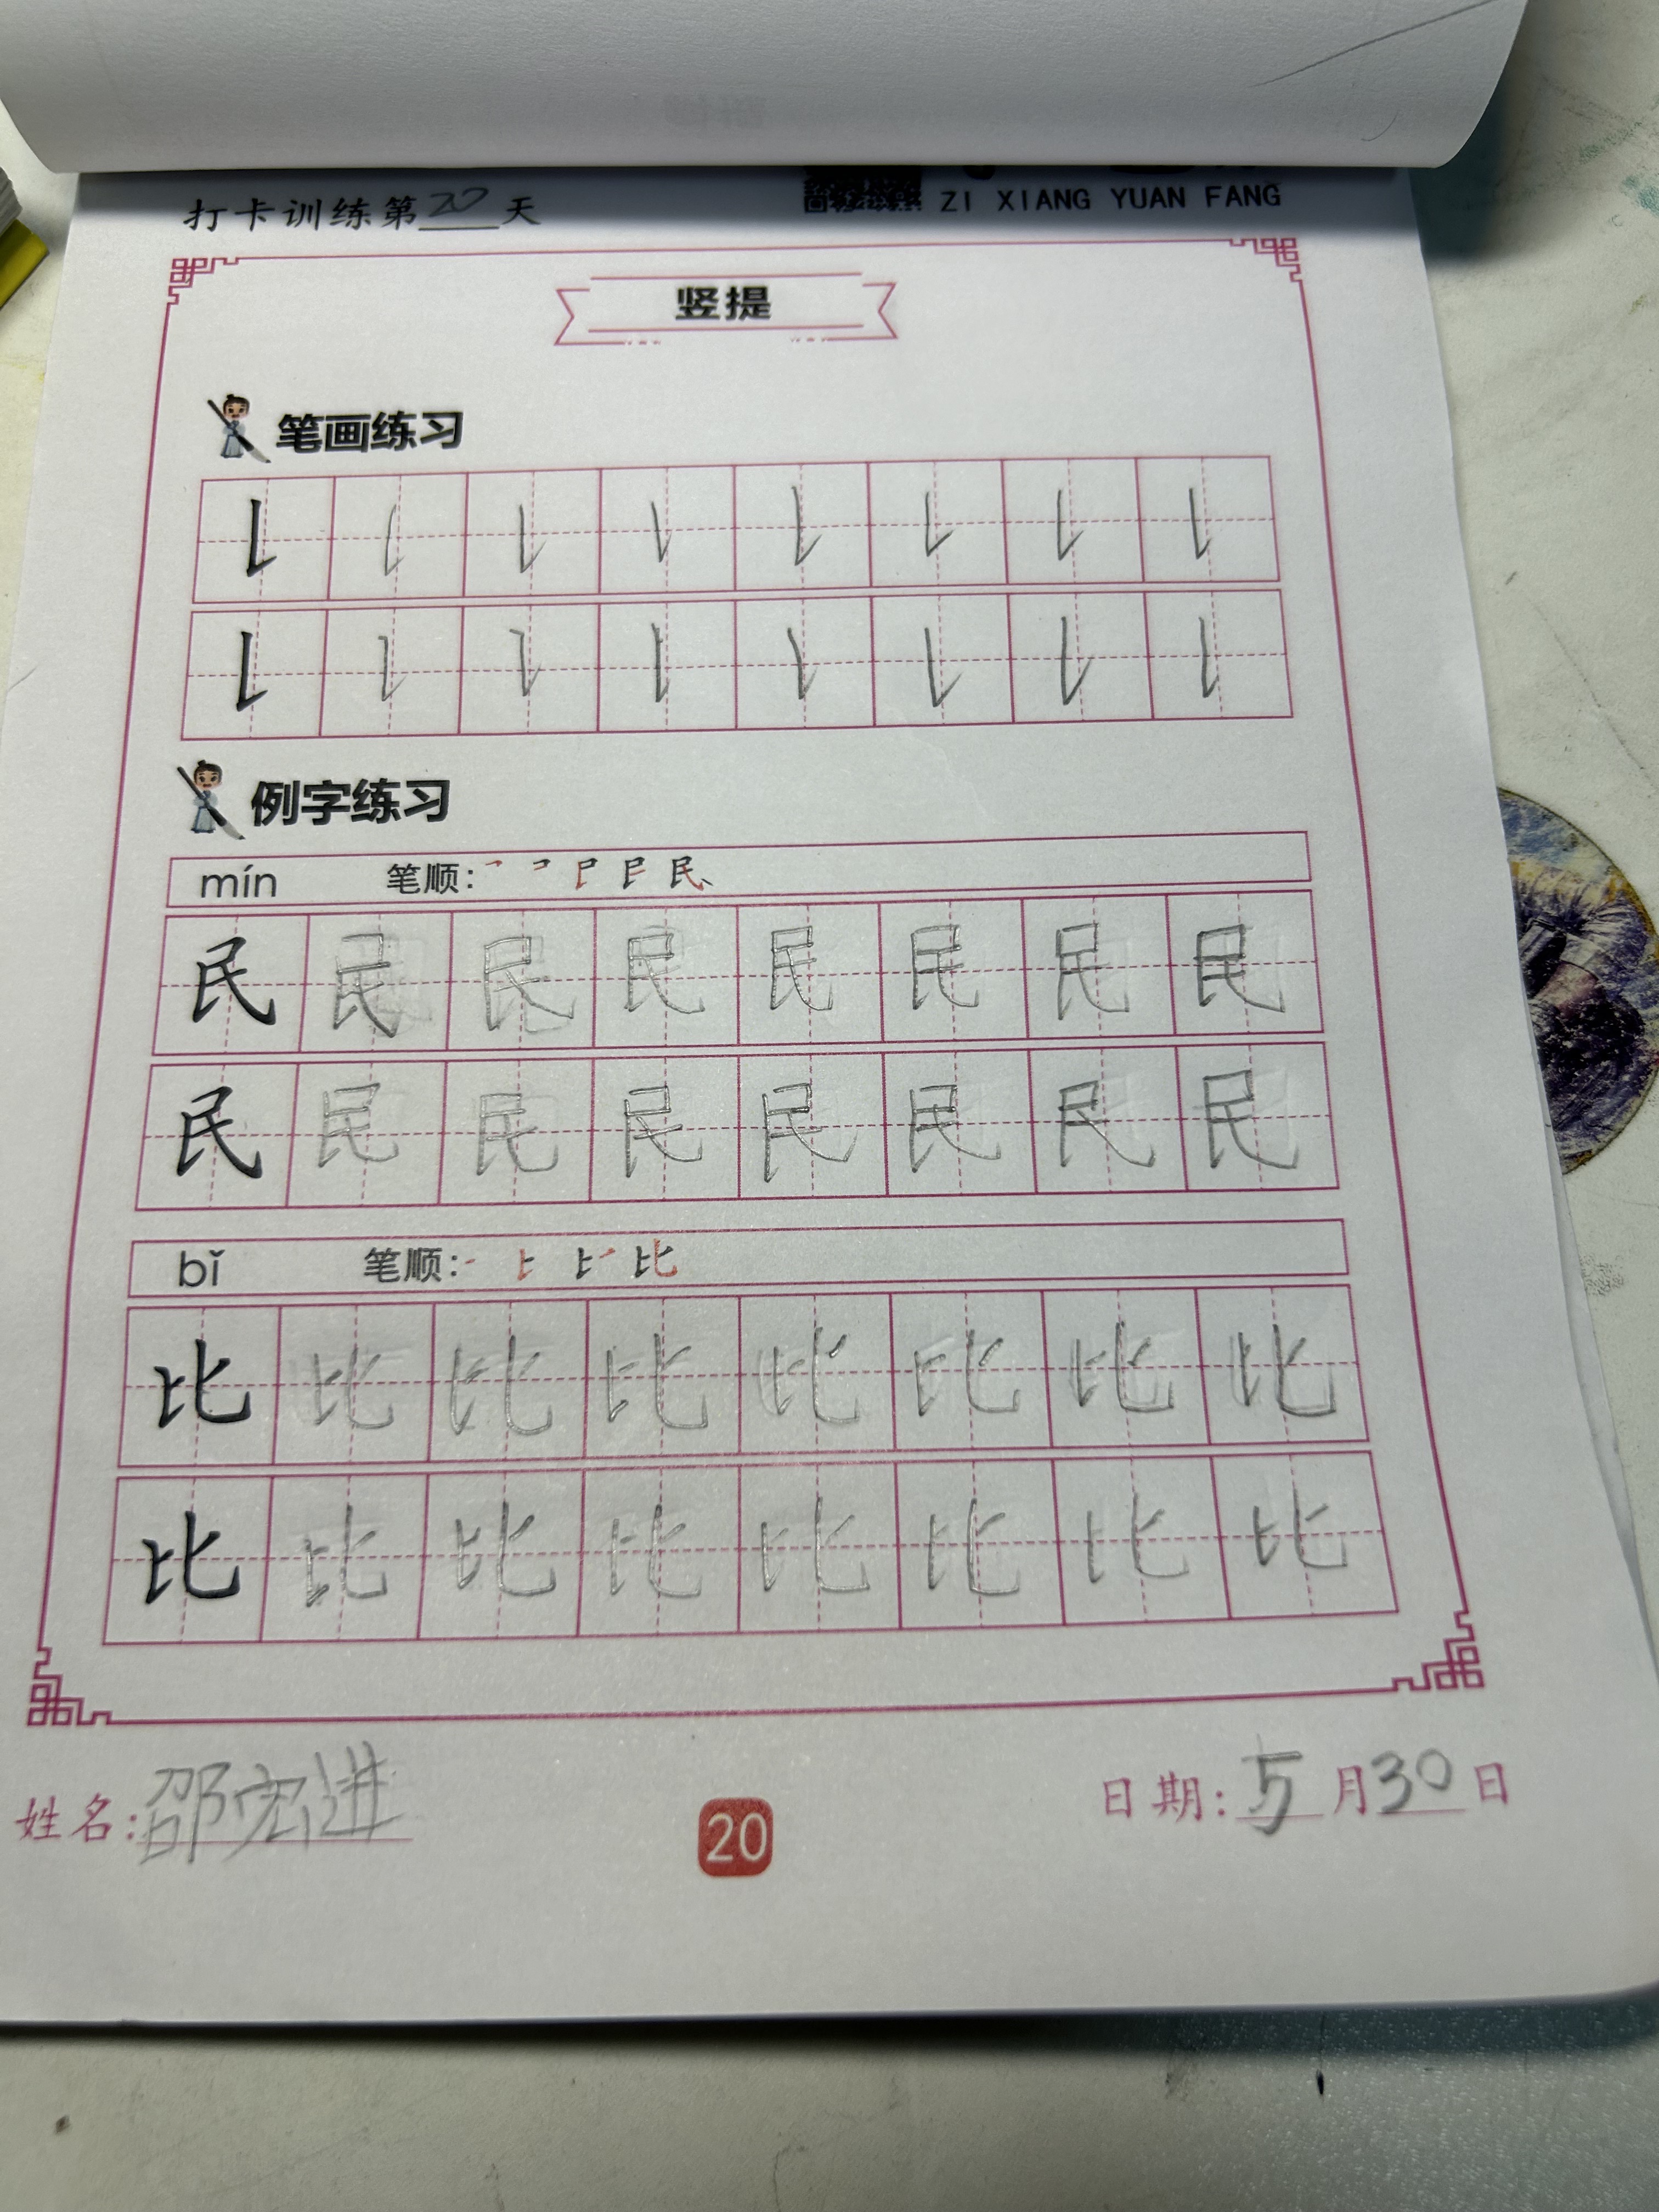 打卡训练第20天
ZI XIANG YUAN FANG
竖提
笔画练习
例字练习
mín 笔顺:
民 民 民 民 民 民 民 民
民 民 民 民 民 民 民 民
bǐ 笔顺:
比 比 比 比 比 比 比 比
比 比 比 比 比 比 比 比
姓名:邵宏进
20
日期:5月30日